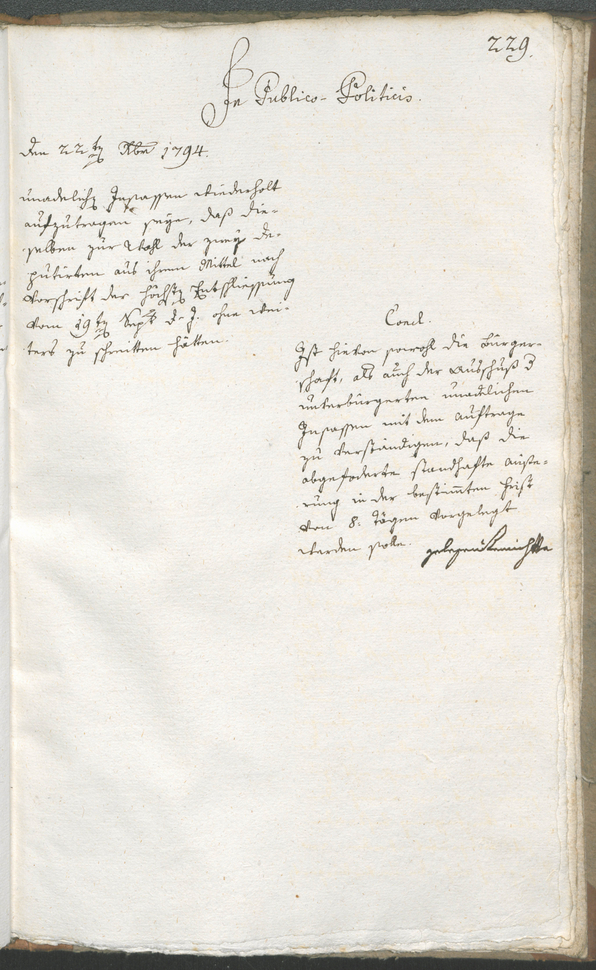 229.
In Publico-Politicis.
Den 22ten Xbr 1794.
unadelichen Insassen wiederholt
aufzutragen seye, daß die-
selben zur Wahl der zwey De-
putirten aus ihrem Mittel nach
Vorschrift der höchsten Entschliessung
vom 19ten Sept. d. J. ohne wei-
ters zu schreitten hätten.
Concl.
Ist hievon sowohl die Bürger-
schaft, als auch der Ausschuß der
unverbürgerten unadelichen
Insassen mit dem Auftrage
zu verständigen, daß die
abgeforderte standhafte Aeuße-
rung in der bestimmten Frist
von 8. Tägen vorgelegt
werden solle.